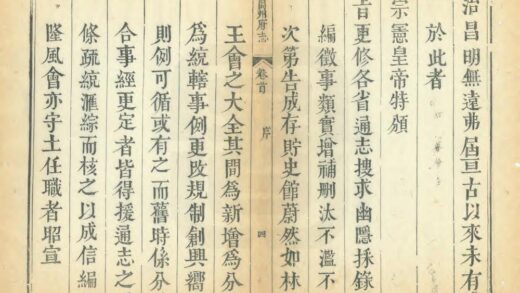 治昌明無遠弗屆亘古以來未有
於此者
宗憲皇帝特頒
旨更修各省通志搜求幽隱採錄
編徵事類實增補刪汰不濫不
次第告成存貯史館蔚然如林
州府志
卷首
序
四
王會之大全其間爲新增爲分
爲統轄事例更改規制創興嚮
則例可循或有之而舊時係分
合事經更定者皆得援通志之
條疏統滙綜而核之以成信編
隆風會亦守土任職者昭宣